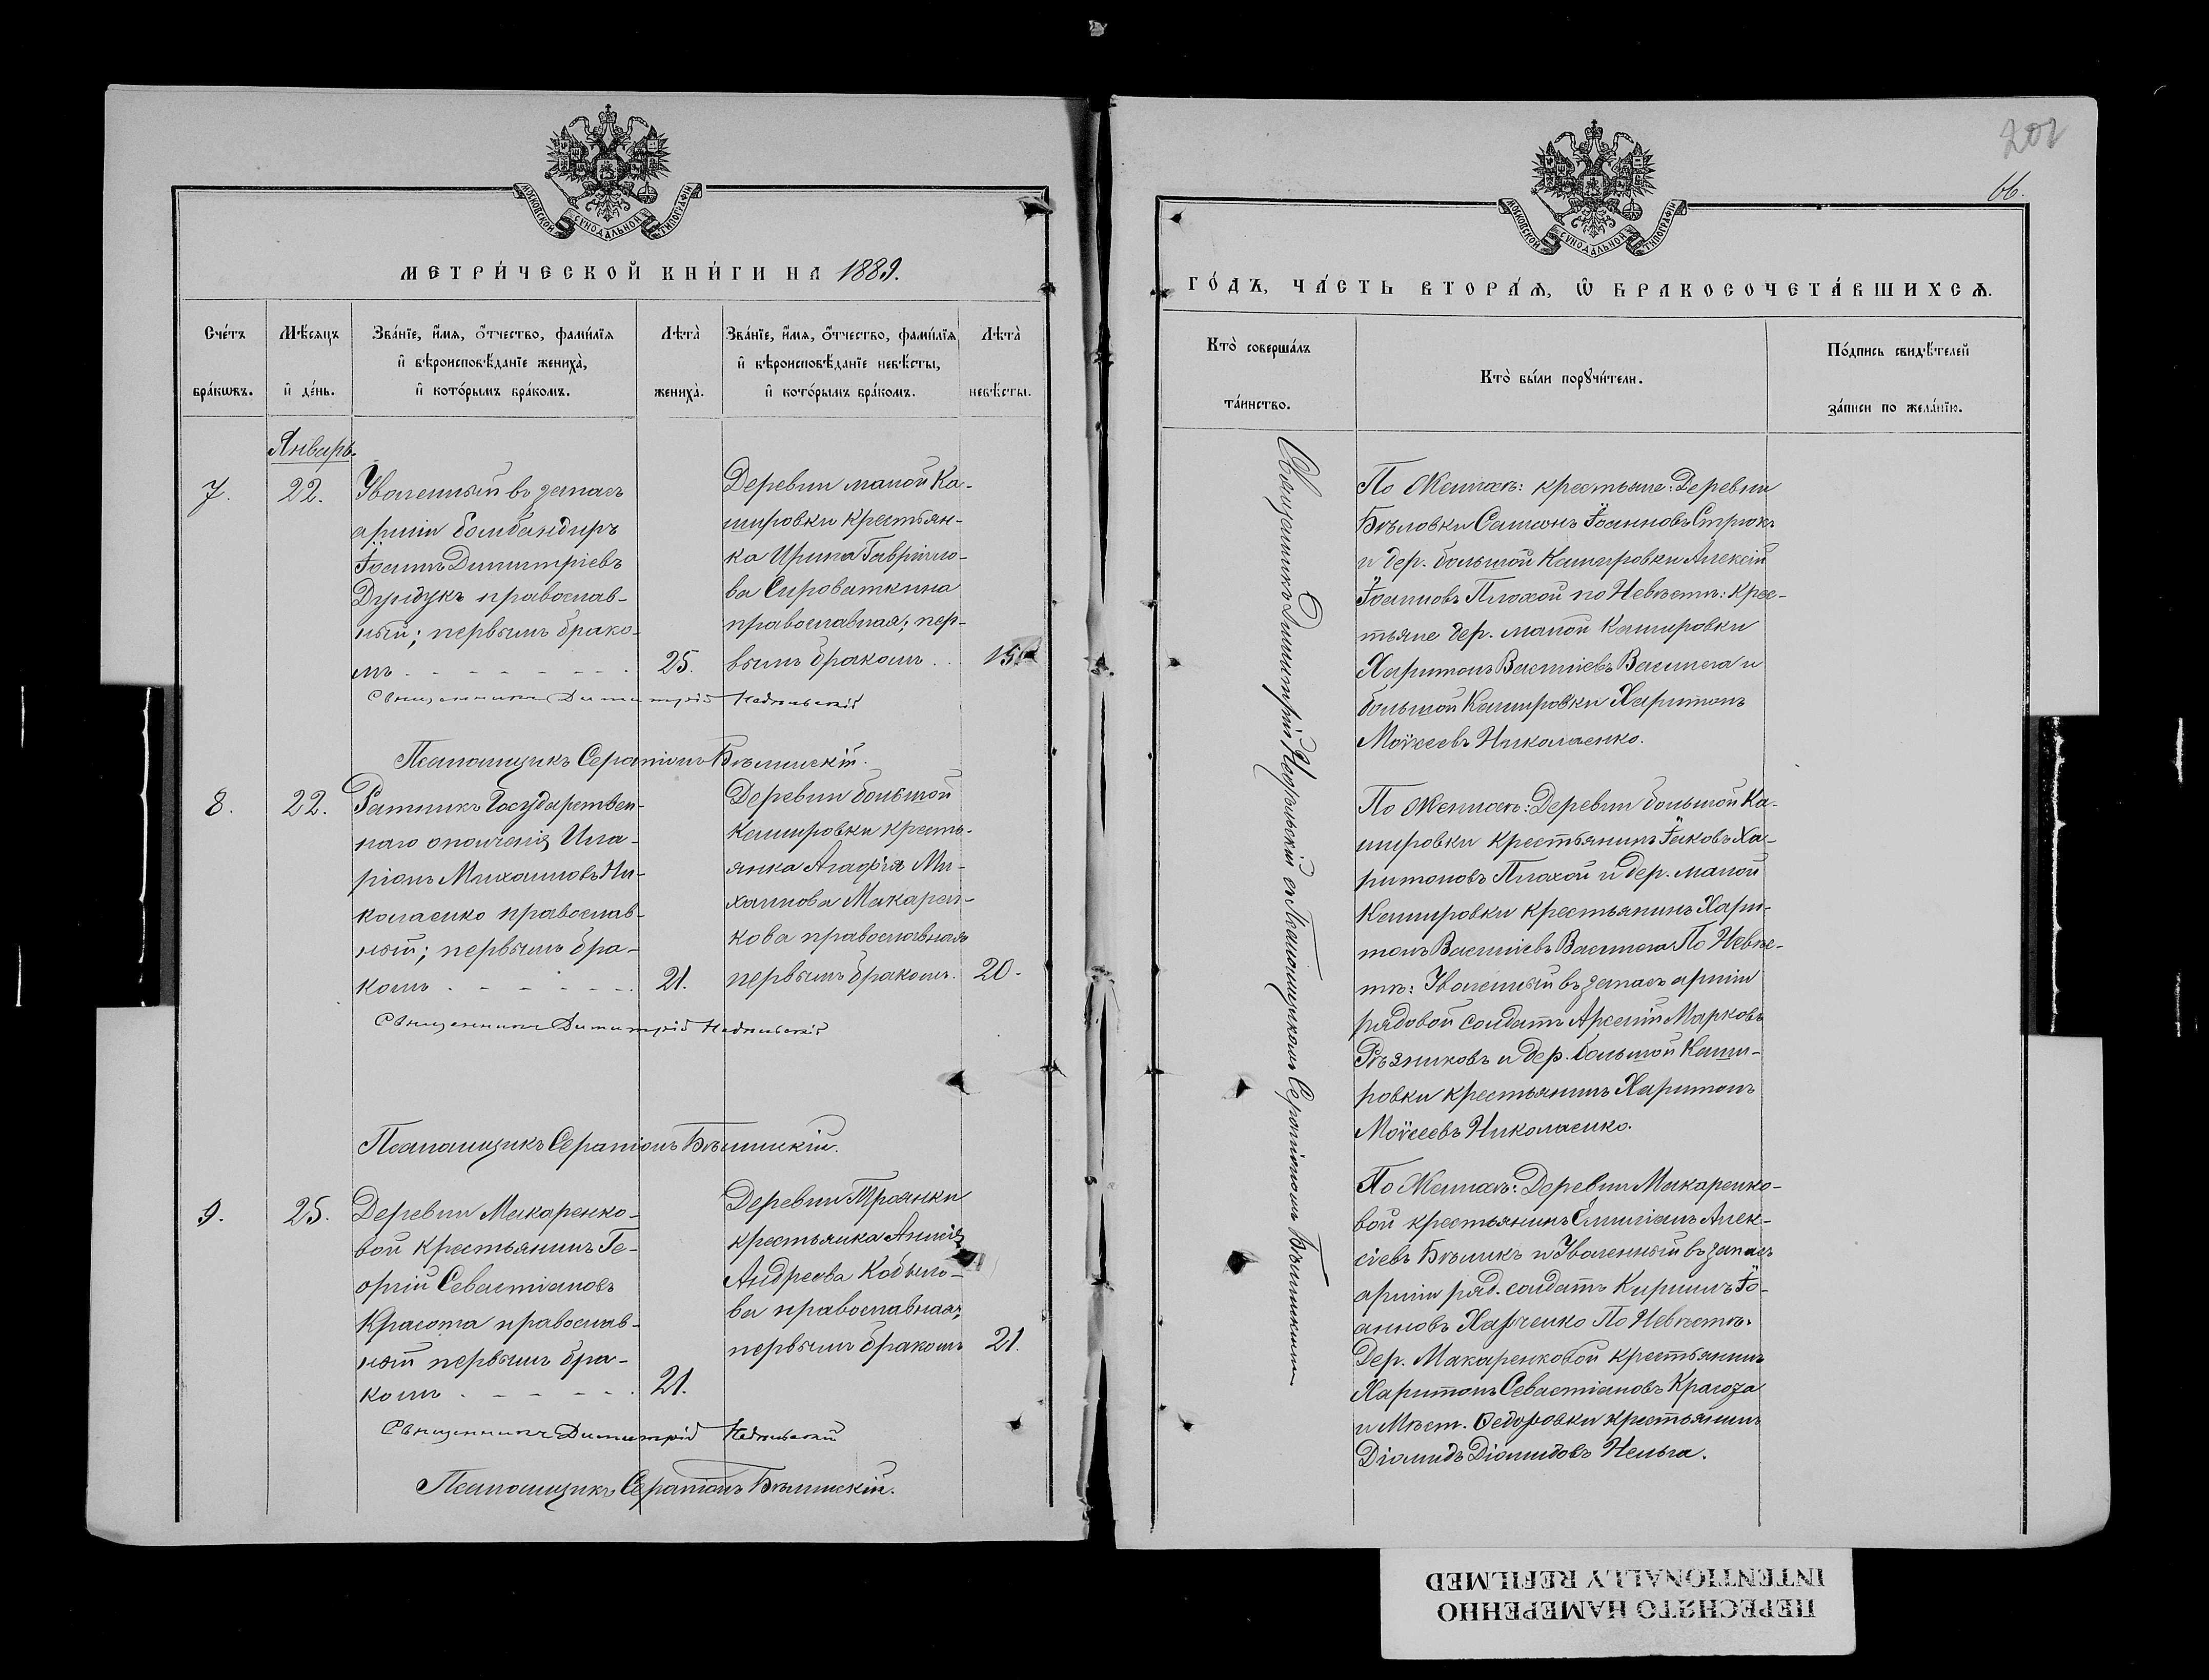 202
66.
МОСКОВСКОЙ СѴНОДАЛЬНОЙ ТИПОГРАФІИ
МЕТРИ́ЧЕСКОЙ КНИ́ГИ НА 1889.
Сче́тъ бра́кѡвъ.
Мѣ́сяцъ и҆ де́нь.
Зва́нїе, и҆́мѧ, ѻ҆́тчество, фами́лїѧ
и҆ вѣроисповѣ́данїе жениха̀,
и҆ кото́рымъ бра́комъ.
Лѣта̀ жениха̀.
Зва́нїе, и҆́мѧ, ѻ҆́тчество, фами́лїѧ
и҆ вѣроисповѣ́данїе невѣ́сты,
и҆ кото́рымъ бра́комъ.
Лѣта̀ невѣ́сты.
Январь.
7.
22.
Уволенный въ запасъ
арміи бомбандиръ
Іоаннъ Димитріевъ
Дундукъ православ-
ный; первымъ брако-
мъ
25.
Деревни малой Ка-
шировки крестьян-
ка Ирина Гавріило-
ва Сироваткина
православная; пер-
вымъ бракомъ
15
Священникъ Димитрій Недзельскій
Псаломщикъ Серапіонъ Бѣлинскій.
8.
22.
Ратникъ Государствен-
наго ополченія Ила-
ріонъ Михаиловъ Ни-
колаенко православ-
ный; первымъ бра-
комъ
21.
Деревни большой
Кашировки кресть-
янка Агафія Ми-
хаилова Макарен-
кова православная
первымъ бракомъ.
20.
Священникъ Димитрій Недзельскій
Псаломщикъ Серапіонъ Бѣлинскій.
9.
25.
Деревни Макаренко-
вой крестьянинъ Ге-
оргій Севастіановъ
православ-
ный первымъ бра-
комъ
21.
Деревни Троянки
крестьянка
Андреева Кобыло-
ва православная;
первымъ бракомъ
21.
Священникъ Димитрій Недзельскій
Псаломщикъ Серапіонъ Бѣлинскій.
МОСКОВСКОЙ СѴНОДАЛЬНОЙ ТИПОГРАФІИ
ГО́ДЪ, ЧА́СТЬ ВТОРА́Ѧ, Ѡ҆ БРАКОСОЧЕТА́ВШИХСѦ.
Кто̀ соверша́лъ
та́инство.
Кто̀ бы́ли порꙋчи́тели.
По́дпись свидѣ́телей
за́писи по жела́нїю.
Священникъ Димитрій Недзельскій съ Псаломщикомъ Серапіономъ Бѣлинскимъ
По Женихѣ: крестьяне: Деревни
Бѣловки Самсонъ Іоанновъ Стрюкъ
и дер. большой Кашировки Алексій
Іоанновъ Плохой по Невѣстѣ: крес-
тьяне дер. малой Кашировки
Харитонъ Василіевъ Васинега и
большой Кашировки Харитонъ
Моѵсеевъ Николаенко.
По Женихѣ: Деревни большой Ка-
шировки крестьянинъ Іаковъ Ха-
ритоновъ Плохой и дер. малой
Кашировки крестьянинъ Хари-
тонъ Василіевъ По Невѣс-
тѣ: Уволенный въ запасъ арміи
рядовой солдатъ Арсеній Марковъ
Рѣзниковъ и дер. большой Каши-
ровки крестьянинъ Харитонъ
Моѵсеевъ Николаенко.
По Женихѣ: Деревни Макаренко-
вой крестьянинъ Емиліанъ Алек-
сіевъ Бѣликъ и Уволенный въ запасъ
арміи ряд. солдатъ Кириллъ Іо-
анновъ Харченко По Невѣстѣ:
Дер. Макаренковой крестьянинъ
Харитонъ Севастіановъ
и Мѣст. Ѳедоровки крестьянинъ
Діомидъ Діомидовъ
ПЕРЕСНЯТО НАМЕРЕННО
INTENTIONALLY REFILMED